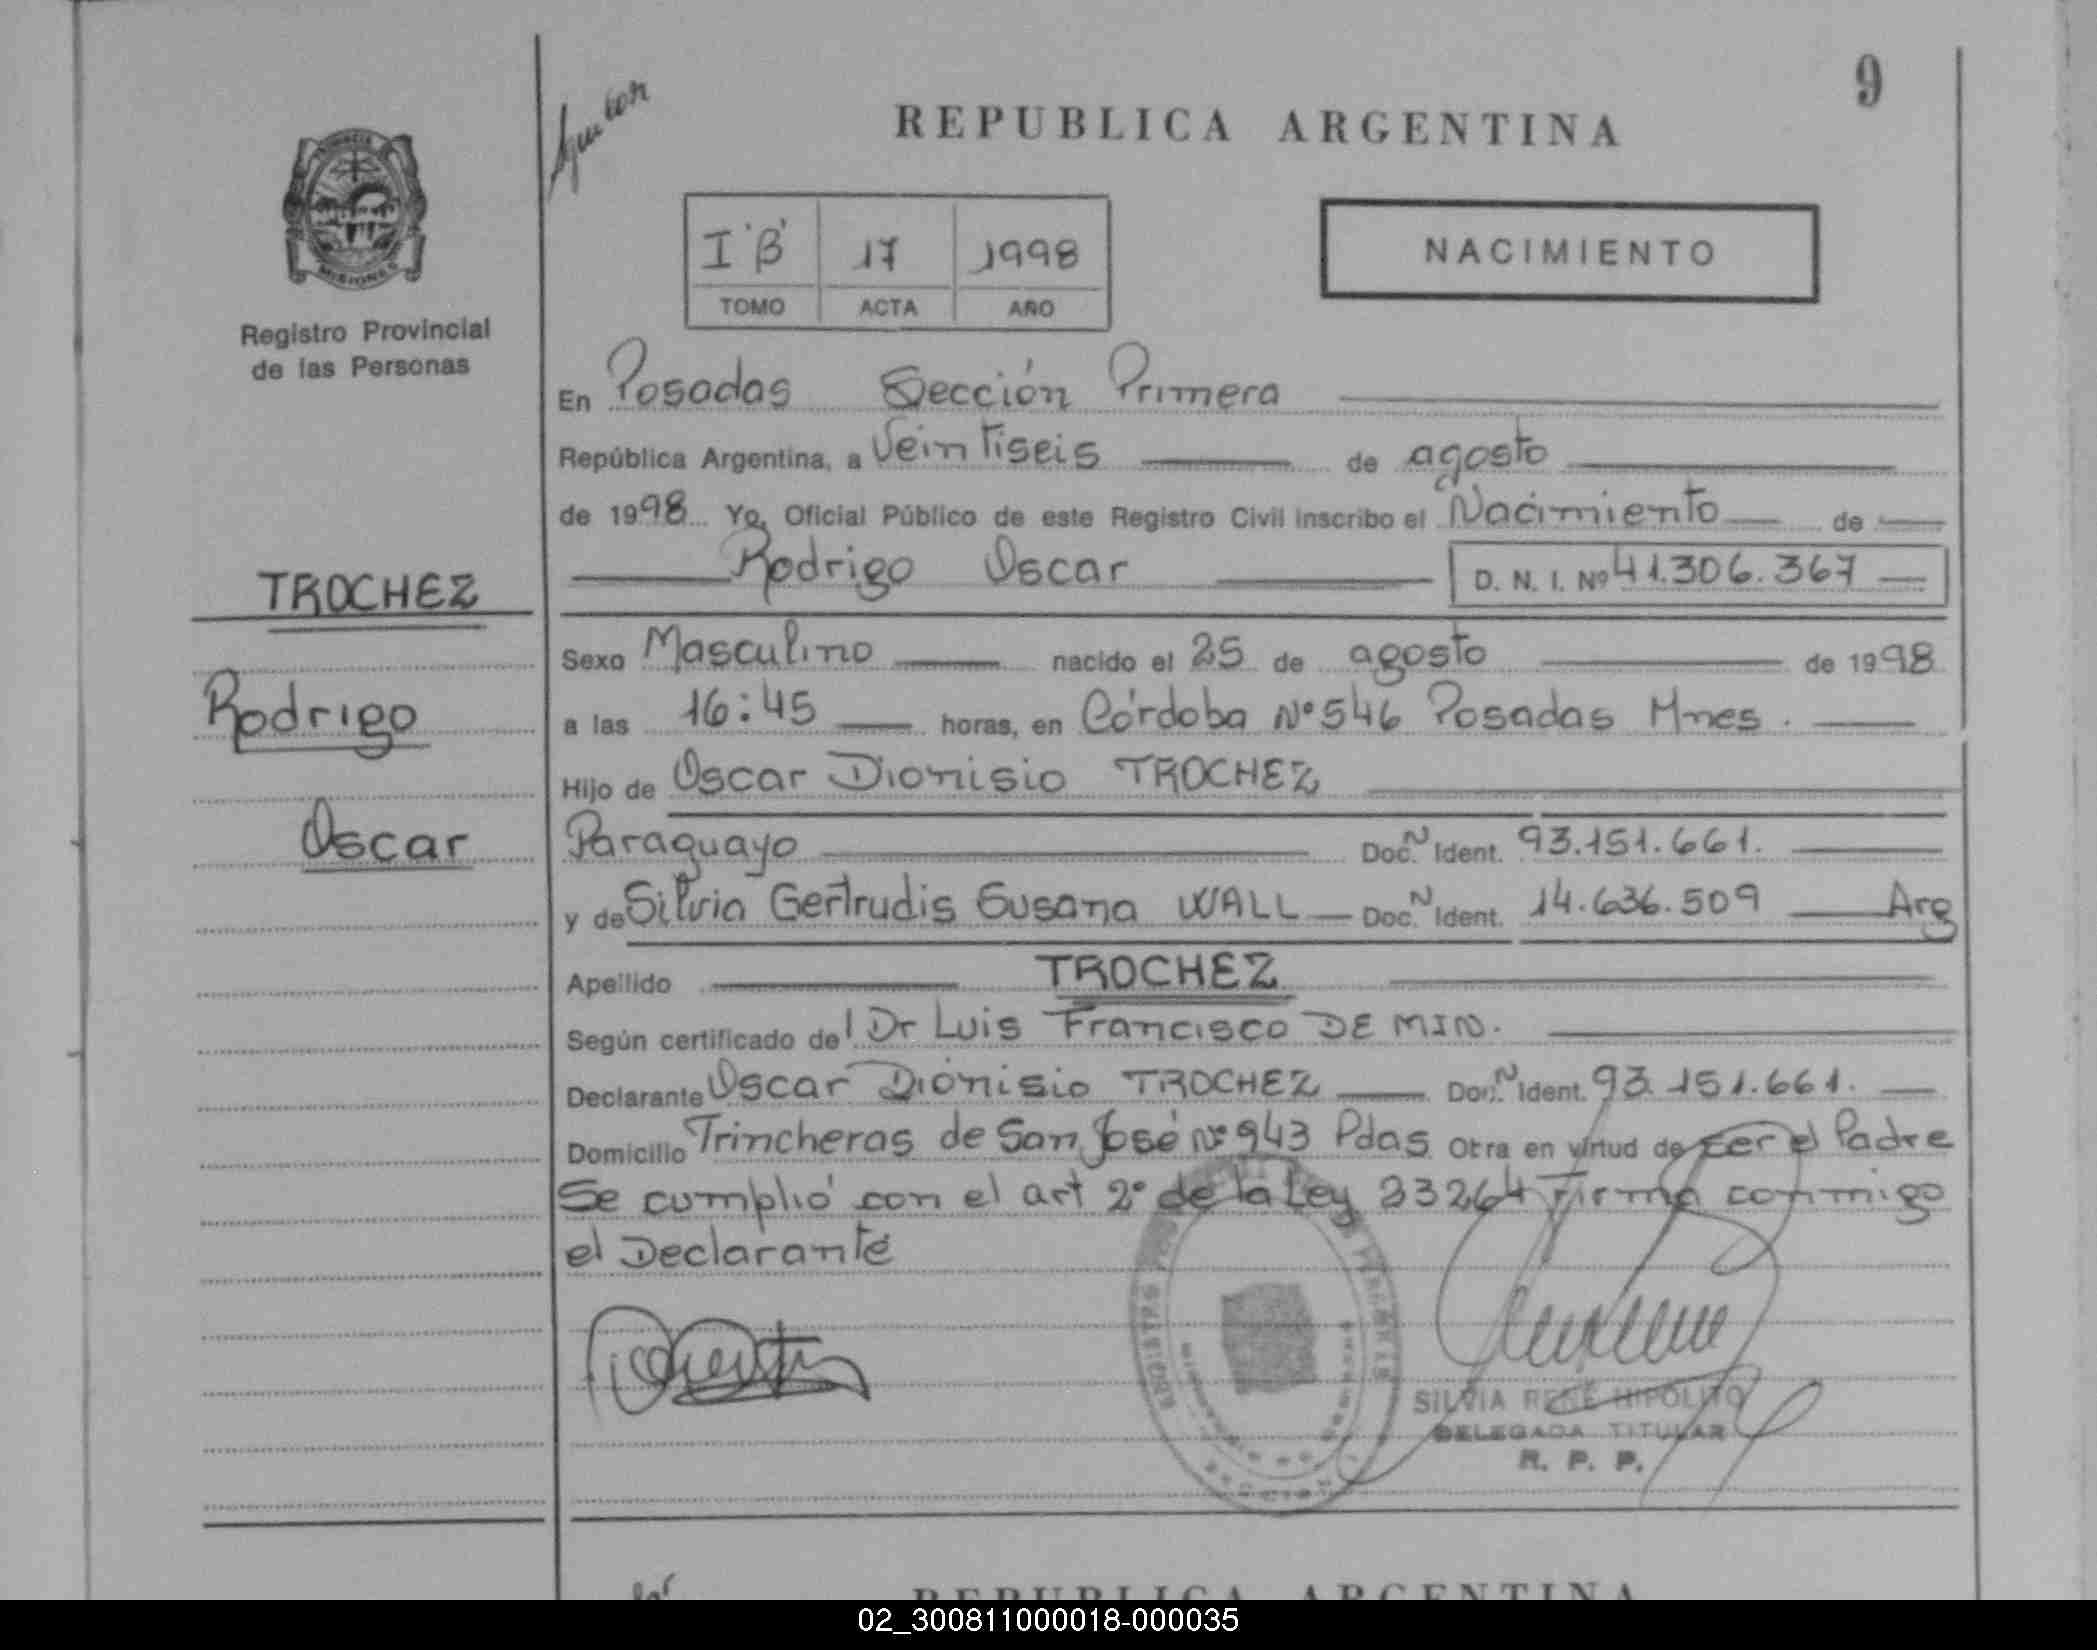 9
REPUBLICA ARGENTINA
I "B" 17 1998
TOMO ACTA AÑO
NACIMIENTO
MISIONES
Registro Provincial
de las Personas
En Posadas Sección Primera
República Argentina, a Veintiseis de agosto
de 1998 Yo, Oficial Público de este Registro Civil inscribo el Nacimiento de
Rodrigo Oscar D. N. I. Nº 41.306.367
TROCHEZ
Rodrigo
Oscar
Sexo Masculino nacido el 25 de agosto de 1998
a las 16:45 horas, en Córdoba Nº 546 Posadas Mnes.
Hijo de Oscar Dionisio TROCHEZ
Paraguayo Doc. N Ident. 93.151.661.
y de Silvia Gertrudis Susana WALL Doc. N Ident. 14.636.509 Arg
Apellido TROCHEZ
Según certificado del Dr Luis Francisco DE MIN.
Declarante Oscar Dionisio TROCHEZ Doc. N Ident. 93.151.661.
Domicilio Trincheras de San José Nº 943 Pdas. Otra en virtud de ser el Padre
Se cumplió con el art 2º de la Ley 23264 Firma conmigo
el Declarante
SILVIA RENÉ HIPOLITO
DELEGADA TITULAR
R. P. P.
REPUBLICA ARGENTINA
02_300811000018-000035